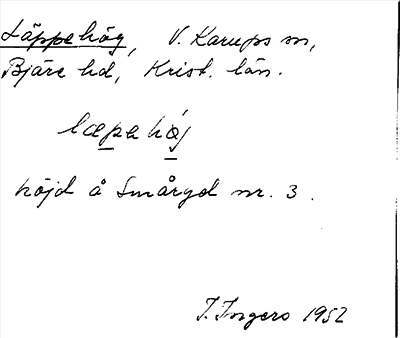 Läppehög, V. Karups sn,
Bjäre hd, Krist. län.
læpahøj
höjd å Småryd nr. 3.
I. Ingers 1952